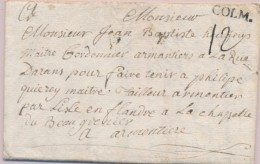 Monsieur
COLM.
Monsieur Jean Baptiste
Maitre Cordonnier armantier a La Rue
Darans pour faire tenir a philipe
quierez maitre Tailleur armantier
par Lisle en flandre a La chapelle
du
a armentiere